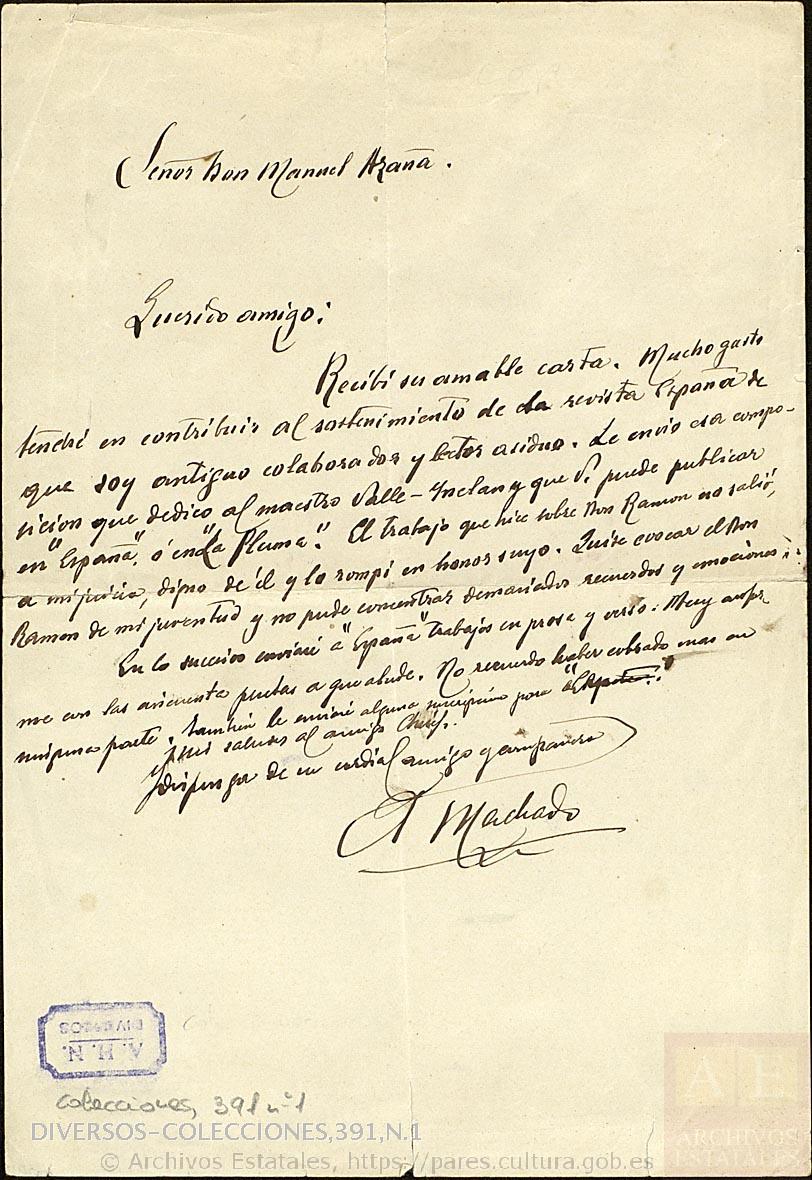 Señor Don Manuel Azaña.
Querido amigo:
Recibí su amable carta. Mucho gusto
tendré en contribuir al sostenimiento de la revista España de
que soy antiguo colaborador y lector asiduo. Le envio esa compo-
sicion que dedico al maestro Valle-Inclan y que V. puede publicar
en "España", ó en "La Pluma". El trabajo que hice sobre Don Ramon no salió,
a mi juicio, digno de él y lo rompí en honor suyo. Quise evocar el Don
Ramon de mi juventud y no pude concentrar demasiados recuerdos y emociones.
En lo sucesivo enviaré a "España" trabajos en prosa y verso. Muy confor-
me con las cincuenta pesetas a que alude. No recuerdo haber cobrado mas en
ninguna parte. Tambien le enviaré alguna suscripcion para "España".
mis saludos al amigo
y disponga de su cordial amigo y compañero
A Machado
A. H. N.
DIVERSOS
Colecciones, 391 nº 1
DIVERSOS-COLECCIONES,391,N.1
AL
ARCHIVOS
ESTATALES
© Archivos Estatales, https://pares.cultura.gob.es